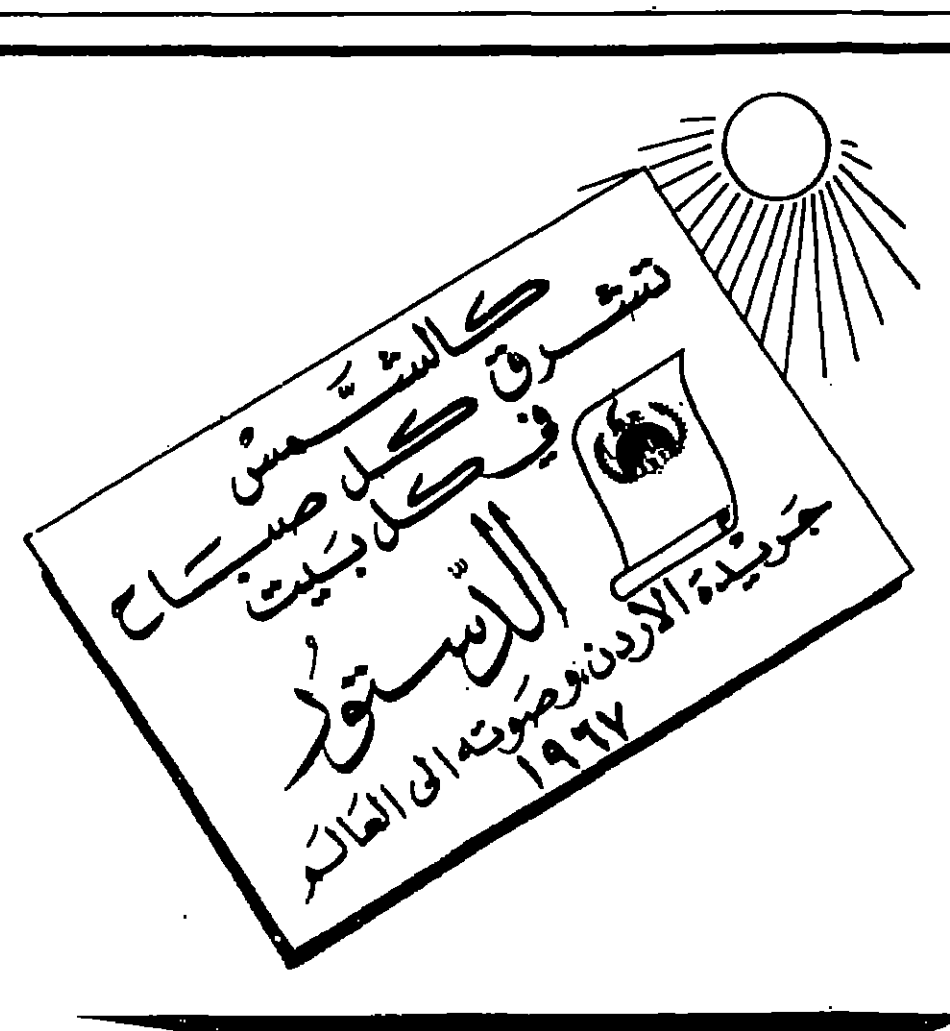 كالشَّمسْ
تشرق كل صبَاح
في كل بَيت
الدّستورُ
جَريْدَة الاردن، وصَوته الى العَالَم
١٩٦٧